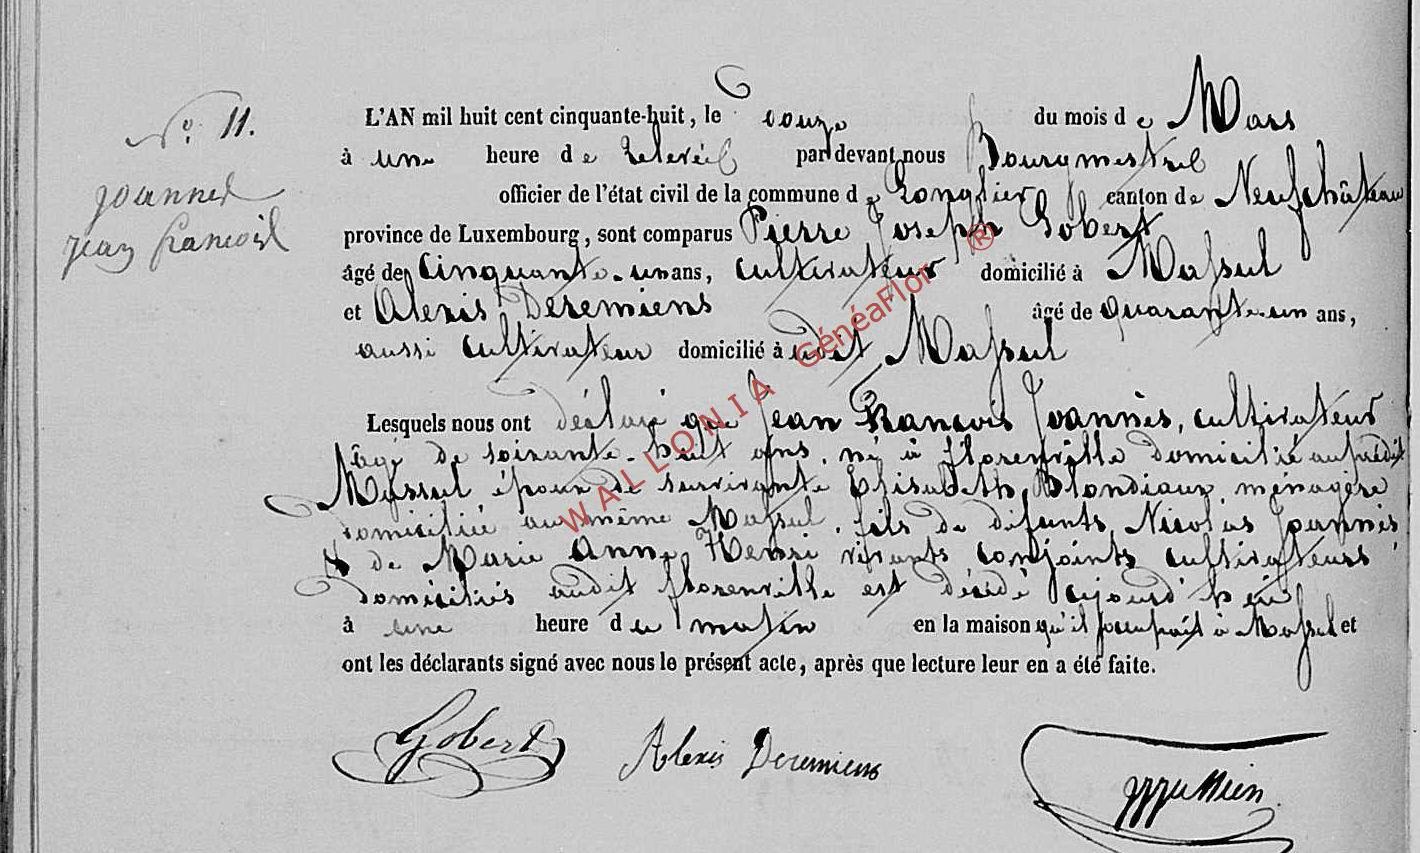 N° 11.
Joannes
Jean francois
L'AN mil huit cent cinquante-huit, le douze du mois de Mars
à une heure de relevée par devant nous Bourgmestre
officier de l'état civil de la commune de Longlier canton de Neufchâteau
province de Luxembourg, sont comparus Pierre Joseph Gobert
âgé de Cinquante-un ans, cultivateur domicilié à Massul
et Alexis Deremiens âgé de quarante-un ans,
aussi cultivateur domicilié à udit Massul
Lesquels nous ont déclaré que Jean Francois Joannès, cultivateur
âgé de soixante-huit ans, né à florenville domicilié au prédit
Massul époux de survivante Elisabeth Blondiaux, ménagère
domiciliée au même Massul, fils de défunts Nicolas Joannès
& de Marie Anne Henri vivants conjoints cultivateurs
domiciliés audit florenville est décédé
à une heure du matin en la maison qu'il à Massul et
ont les déclarants signé avec nous le présent acte, après que lecture leur en a été faite.
Gobert Alexis Deremiens
WALLONIA GénéaFlor ®